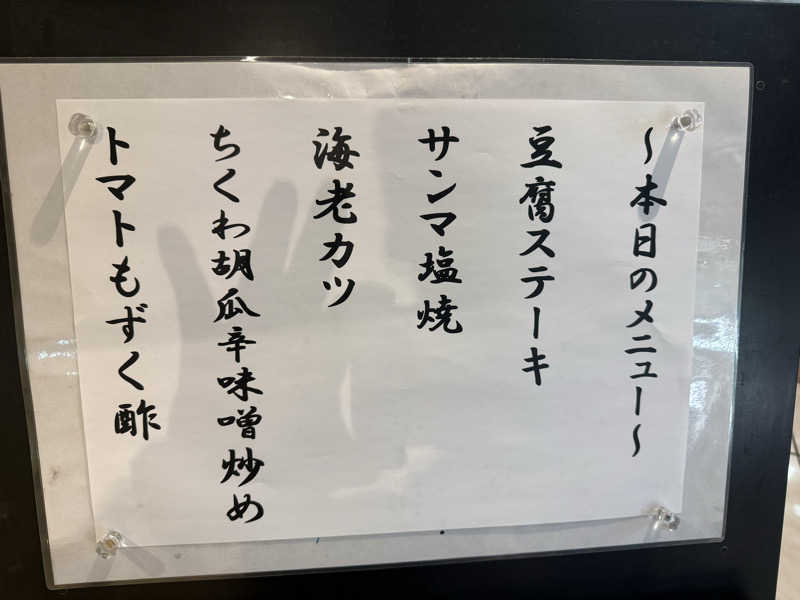 ～本日のメニュー～
豆腐ステーキ
サンマ塩焼
海老カツ
ちくわ胡瓜辛味噌炒め
トマトもずく酢